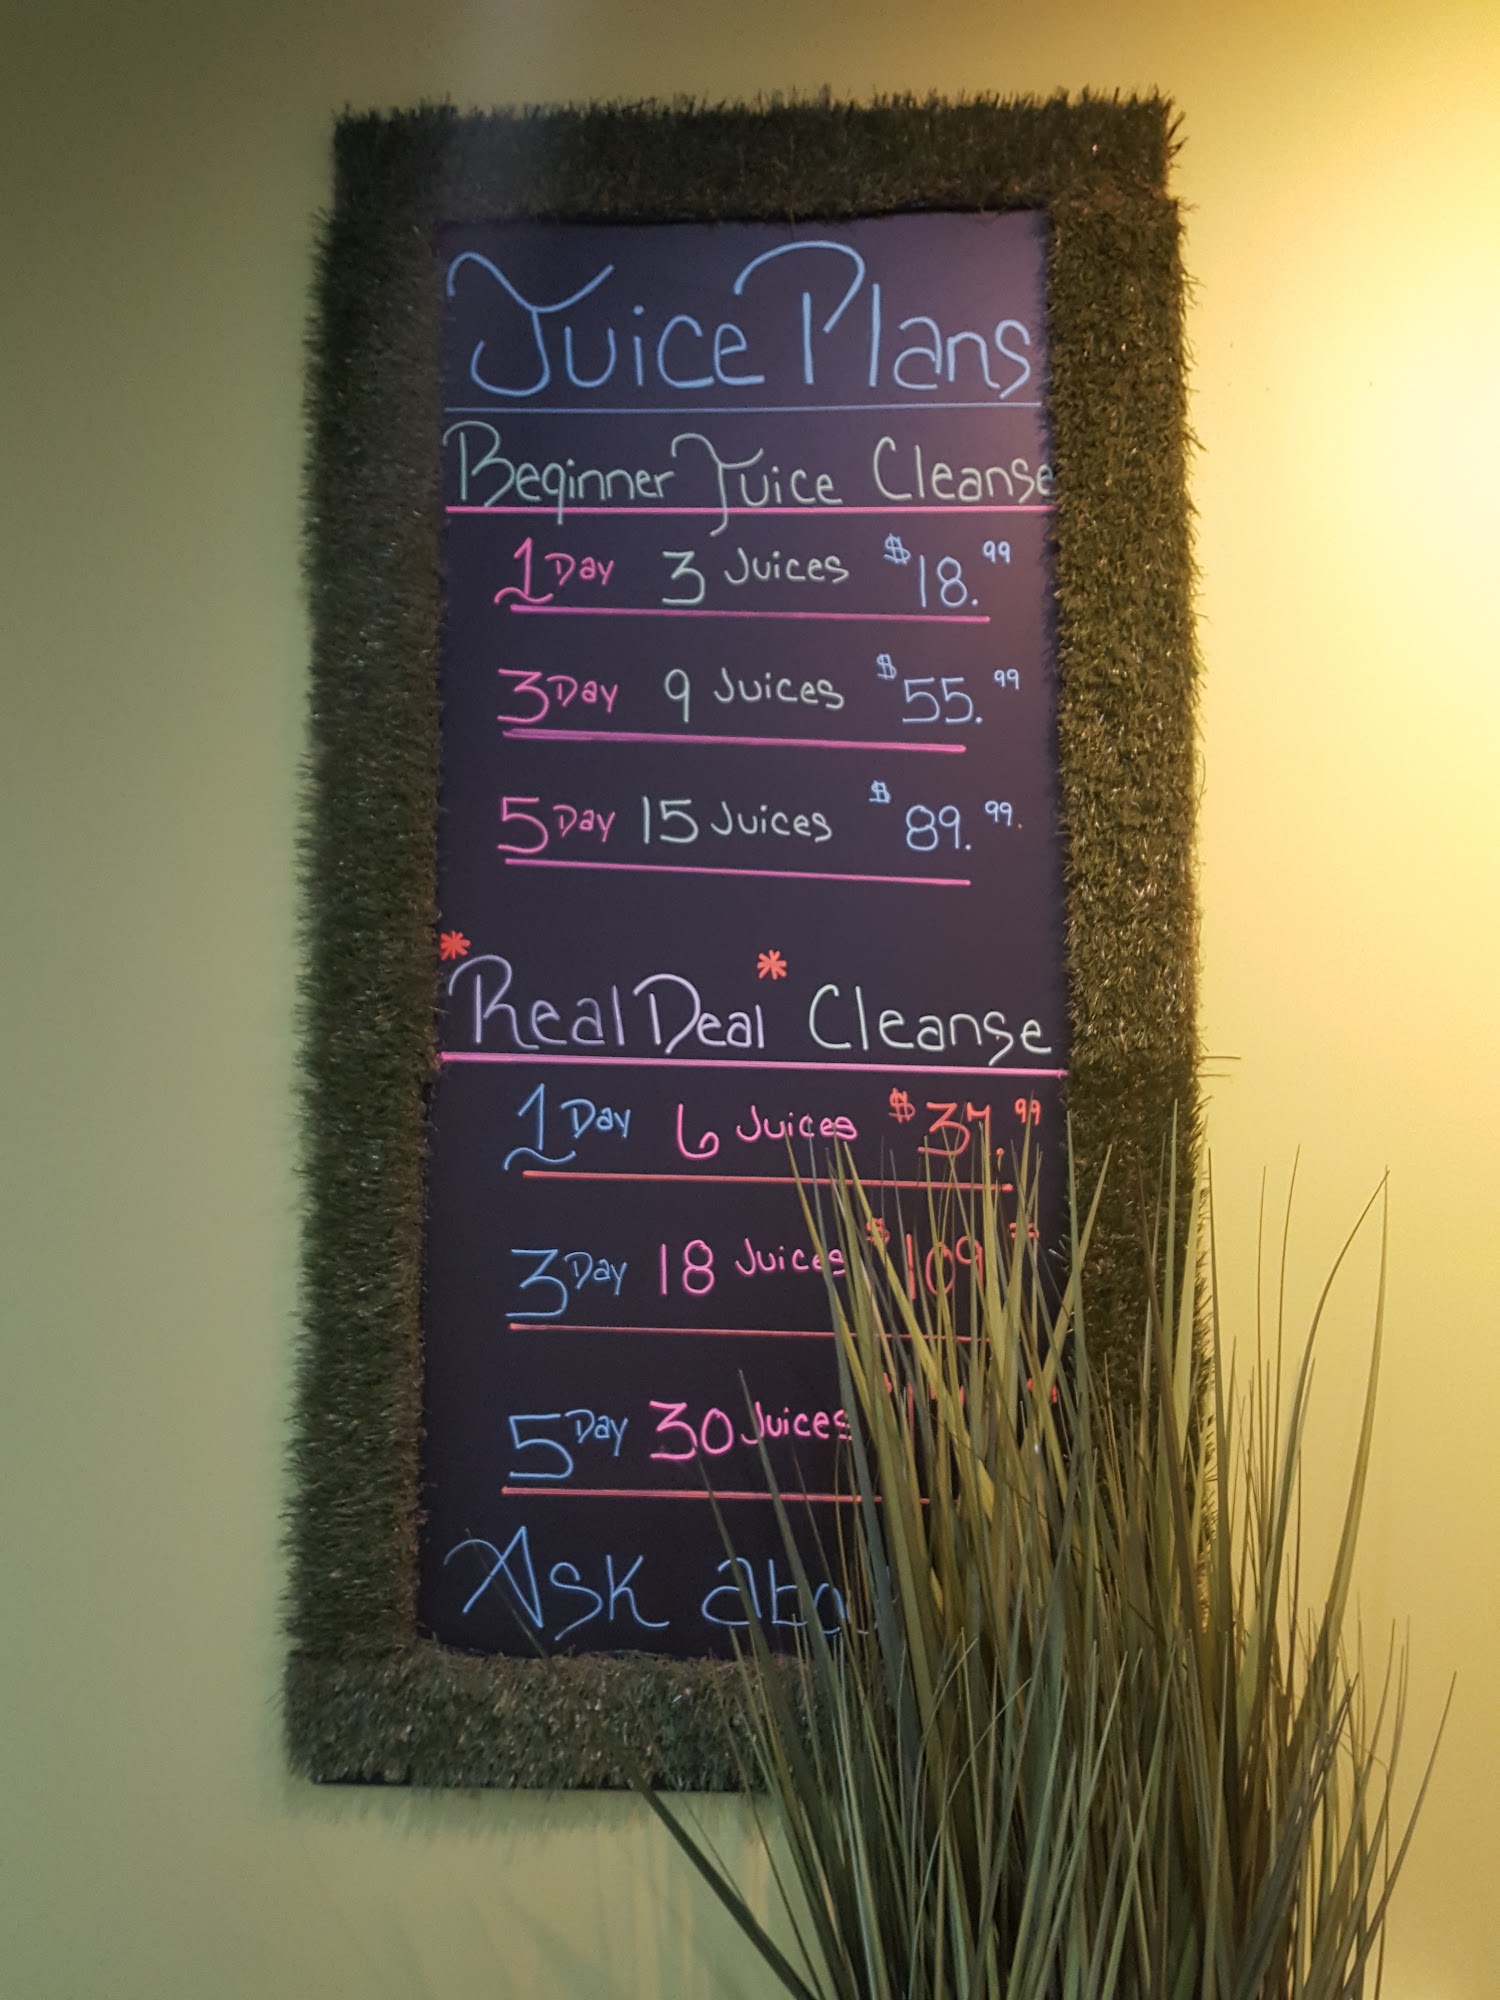 Juice Plans
Beginner Juice Cleanse
1 Day 3 Juices $18.99
3 Day 9 Juices $55.99
5 Day 15 Juices $89.99.
*Real Deal* Cleanse
1 Day 6 Juices $37.99
3 Day 18 Juices $109
5 Day 30 Juices
Ask